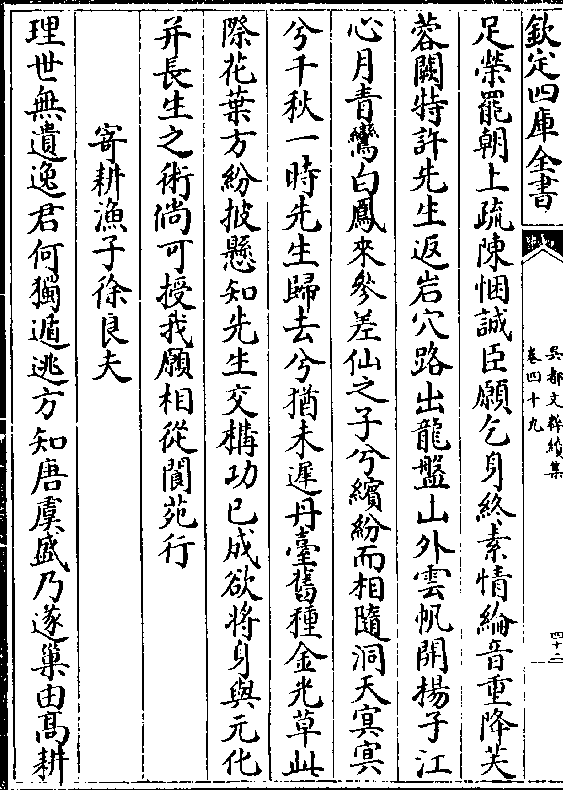 欽定四庫全書
吳都文粹續集
卷四十九
四十二
足榮罷朝上疏陳悃誠臣願乞身終素情綸音重降芙
蓉闕特許先生返岩穴路出龍盤山外雲帆開揚子江
心月青鸞白鳳來參差仙之子兮繽紛而相隨洞天冥冥
兮千秋一時先生歸去兮猶未遲丹臺舊種金光草此
際花葉方紛披懸知先生交構功已成欲將身與元化
并長生之術倘可授我願相從閬苑行
寄耕漁子徐良夫
理世無遺逸君何獨遁逃方知唐虞盛乃遂巢由高耕